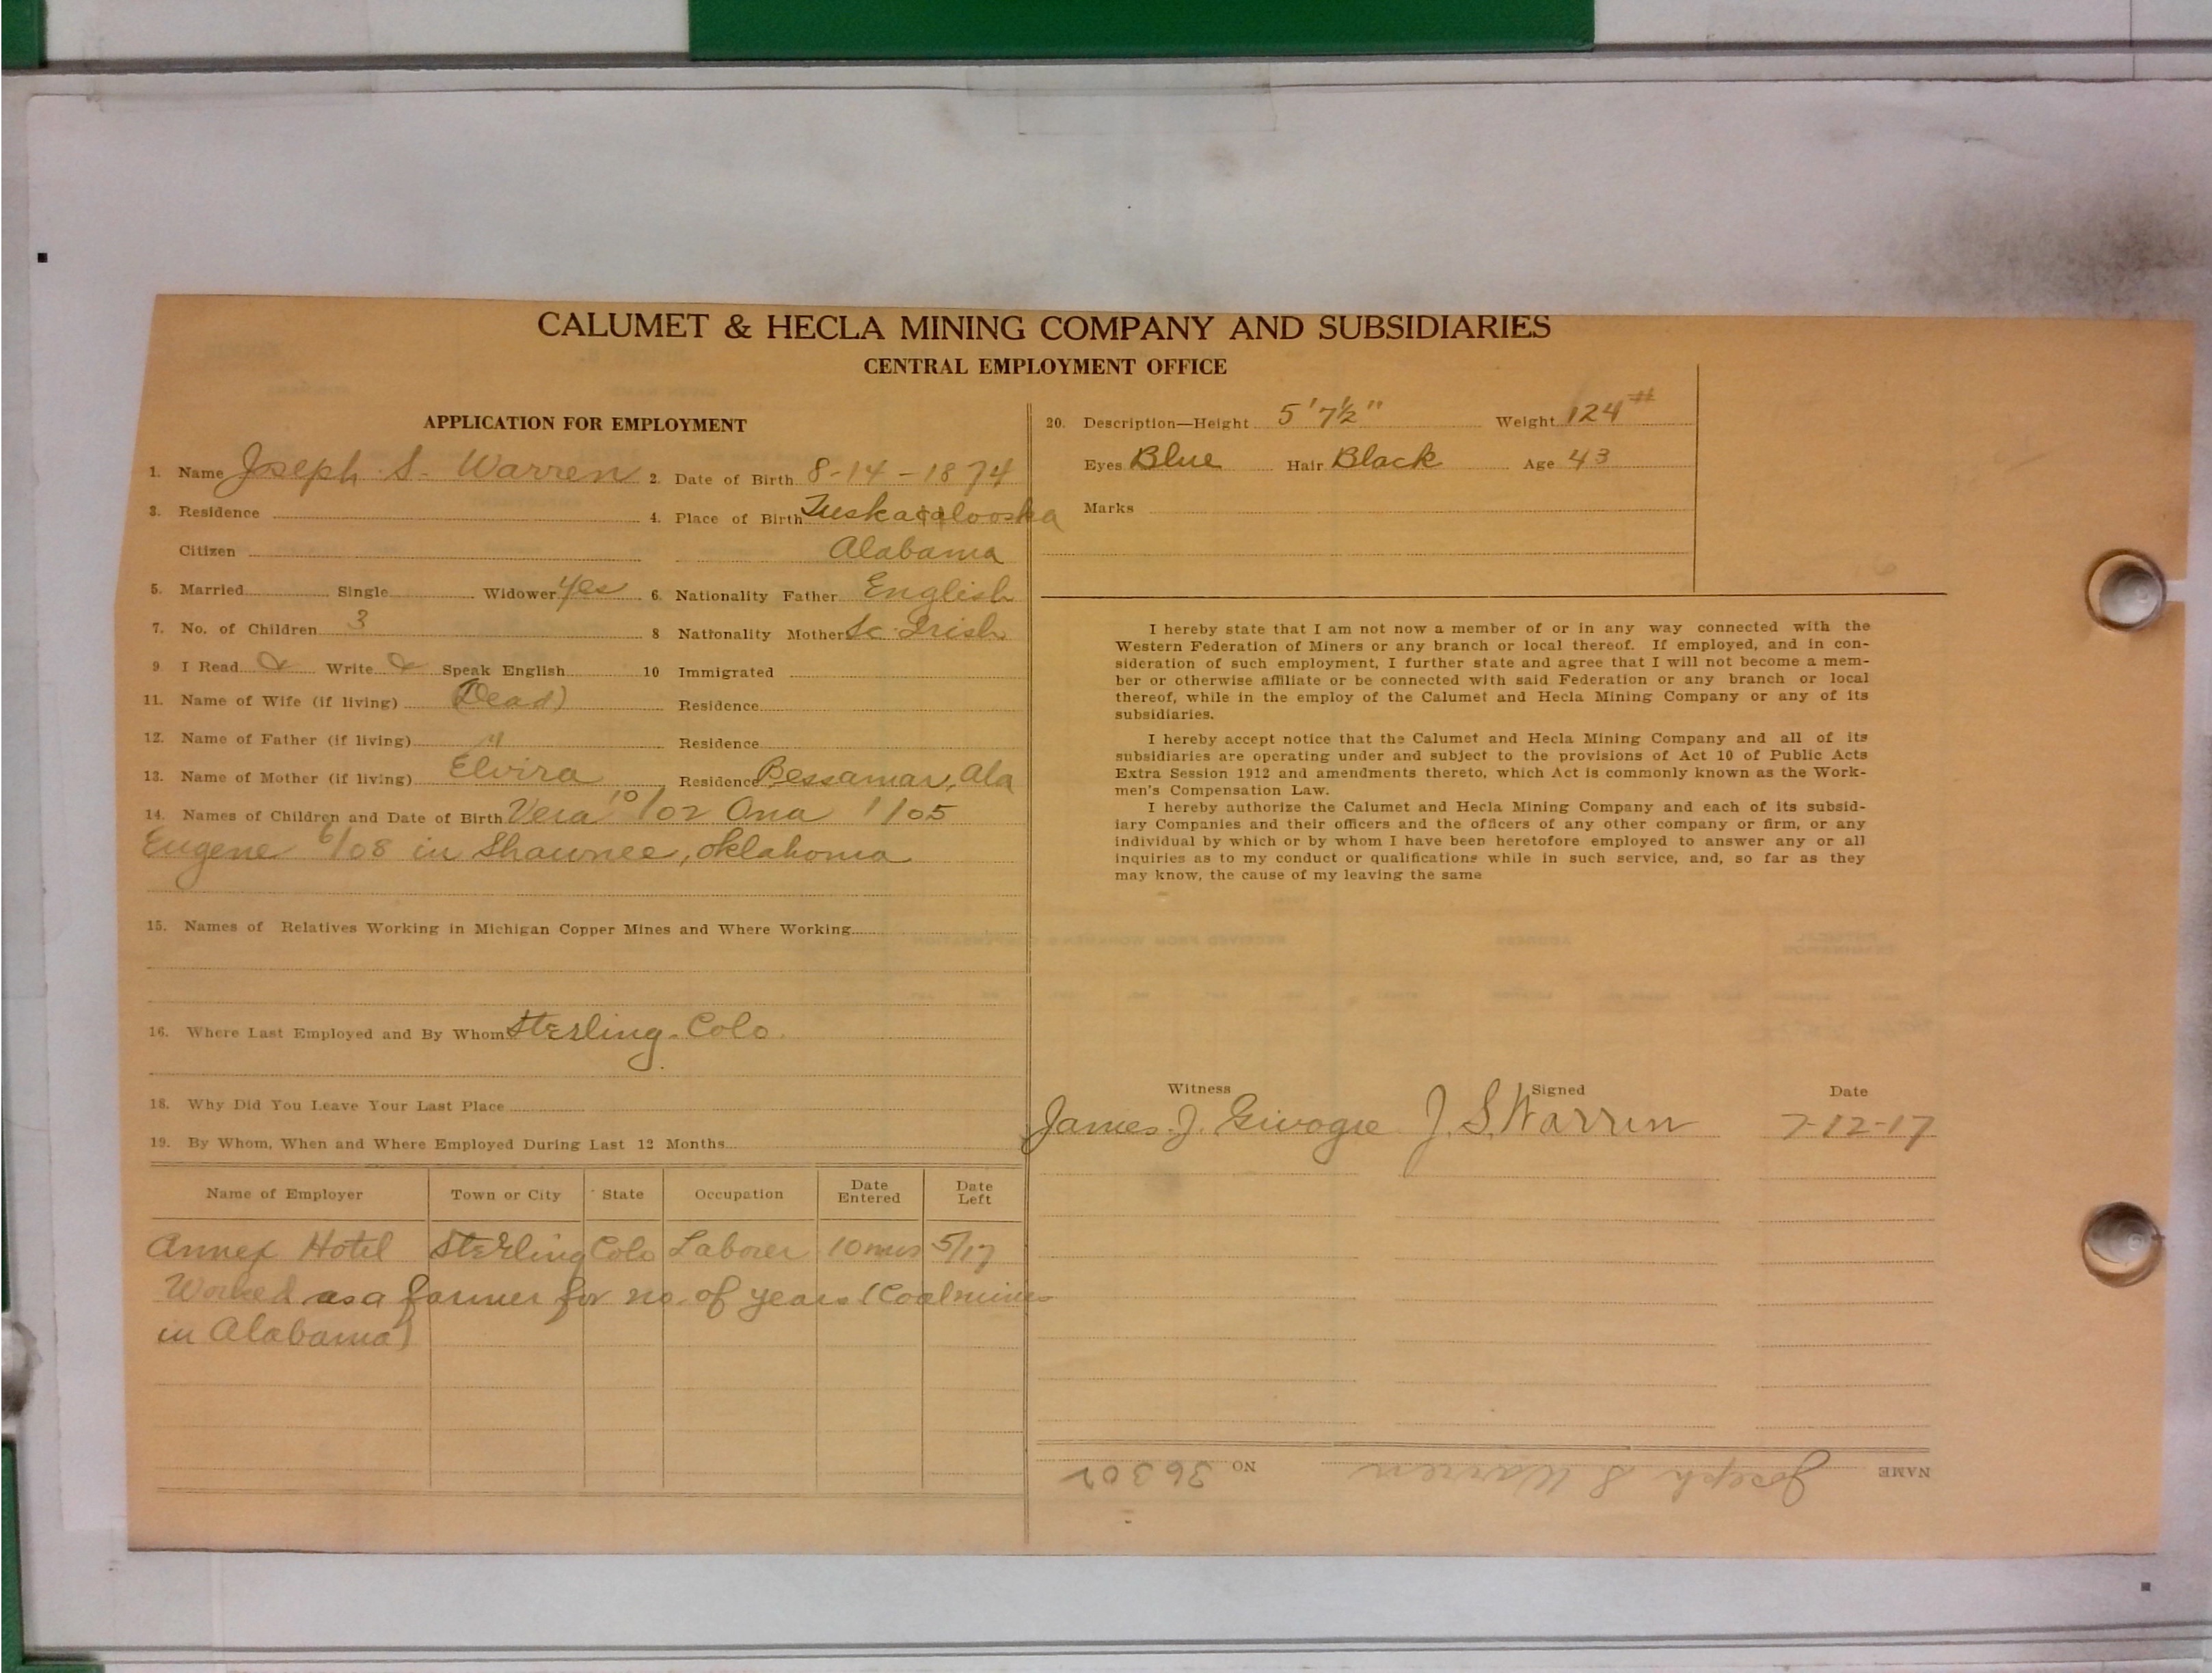 CALUMET & HECLA MINING COMPANY AND SUBSIDIARIES
CENTRAL EMPLOYMENT OFFICE
APPLICATION FOR EMPLOYMENT
1. Name Joseph S. Warren 2. Date of Birth 8-14-1874
3. Residence 4. Place of Birth
Citizen Alabama
5. Married Single Widower yes 6. Nationality Father English
7. No. of Children 3 8 Nationality Mother Sc. Irish
9 I Read Write Speak English 10 Immigrated
11. Name of Wife (if living) (Dead) Residence
12. Name of Father (if living) " Residence
13. Name of Mother (if living) Elvira Residence Bessamar, Ala
14. Names of Children and Date of Birth Vera 10/02 Ona 1/05
Eugene 6/08 in Shawnee, Oklahoma
15. Names of Relatives Working in Michigan Copper Mines and Where Working
16. Where Last Employed and By Whom Sterling - Colo.
18. Why Did You Leave Your Last Place
19. By Whom, When and Where Employed During Last 12 Months
Name of Employer Town or City State Occupation Date Entered Date Left
Annex Hotel Sterling Colo Laborer 10 mos 5/17
Worked as a farmer for no. of years (Coal mines
in Alabama)
20. Description—Height 5' 7½" Weight 124#
Eyes Blue Hair Black Age 43
Marks
I hereby state that I am not now a member of or in any way connected with the
Western Federation of Miners or any branch or local thereof. If employed, and in con-
sideration of such employment, I further state and agree that I will not become a mem-
ber or otherwise affiliate or be connected with said Federation or any branch or local
thereof, while in the employ of the Calumet and Hecla Mining Company or any of its
subsidiaries.
I hereby accept notice that the Calumet and Hecla Mining Company and all of its
subsidiaries are operating under and subject to the provisions of Act 10 of Public Acts
Extra Session 1912 and amendments thereto, which Act is commonly known as the Work-
men's Compensation Law.
I hereby authorize the Calumet and Hecla Mining Company and each of its subsid-
iary Companies and their officers and the officers of any other company or firm, or any
individual by which or by whom I have been heretofore employed to answer any or all
inquiries as to my conduct or qualifications while in such service, and, so far as they
may know, the cause of my leaving the same
Witness Signed Date
James J. J. S. Warren 7-12-17
NAME Joseph S Warren NO 36302